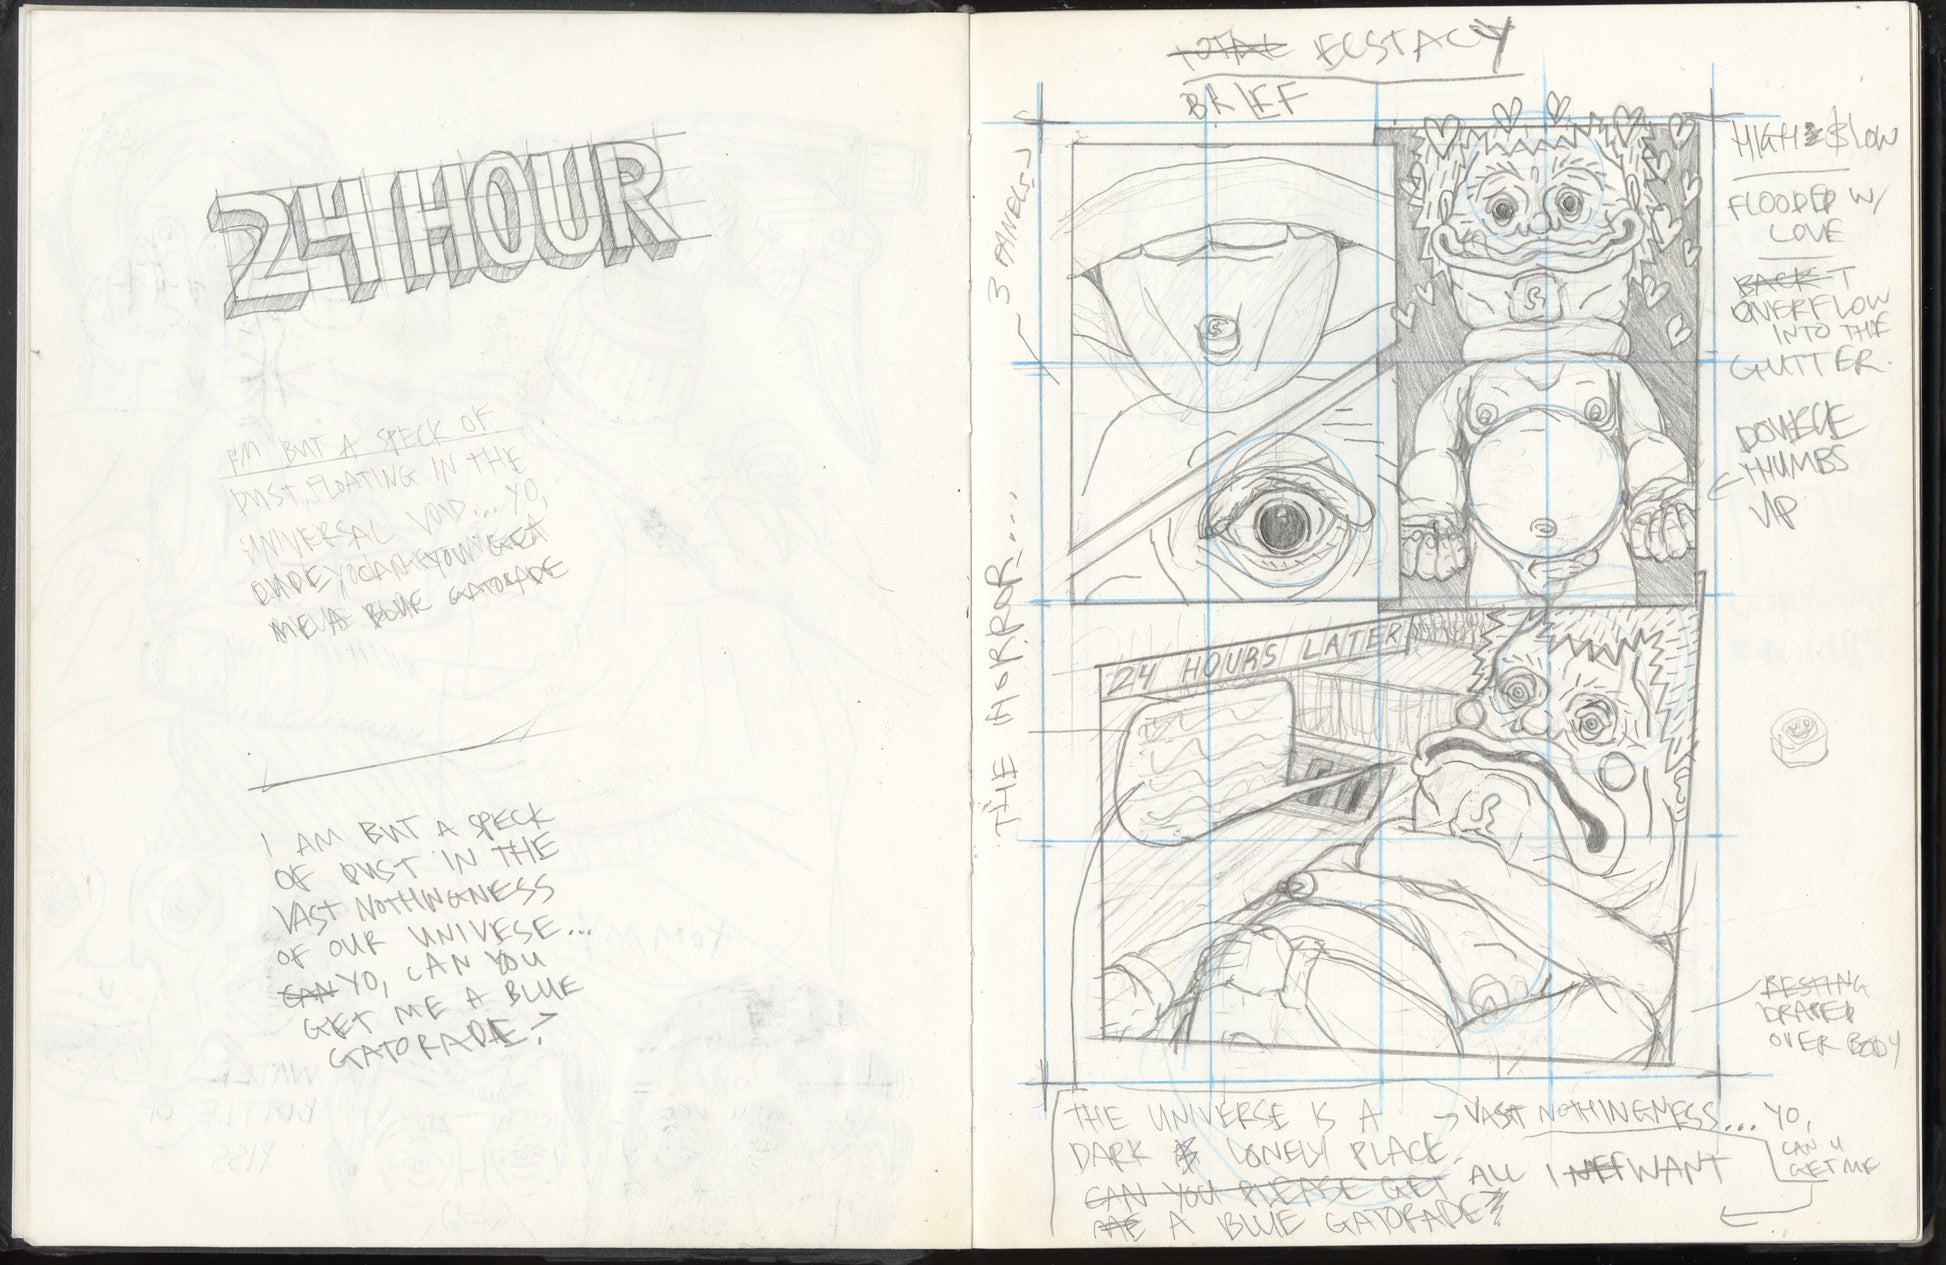 24 HOUR
I'M BUT A SPECK OF
DUST, FLOATING IN THE
UNIVERSAL VOID... YO,
DUDE YO CAN YOU GET
ME A BLUE GATORADE
I AM BUT A SPECK
OF DUST IN THE
VAST NOTHINGNESS
OF OUR UNIVESE...
CAN YO, CAN YOU
GET ME A BLUE
GATORADE?
YOMMY
WATER
BOTTLE OF
PISS
TOTAL ECSTACY
BRIEF
3 PANELS
THE HORROR...
HIGH & SLOW
FLOODED W/
LOVE
BACK T
OVERFLOW
INTO THE
GUTTER.
DOUBLE
THUMBS
UP
24 HOURS LATER
RESTING
DRAPED
OVER BODY
THE UNIVERSE IS A → VAST NOTHINGNESS... YO,
CAN U
GET ME
DARK & LONELY PLACE
CAN YOU PLEASE GET ALL I WANT
ME A BLUE GATORADE?